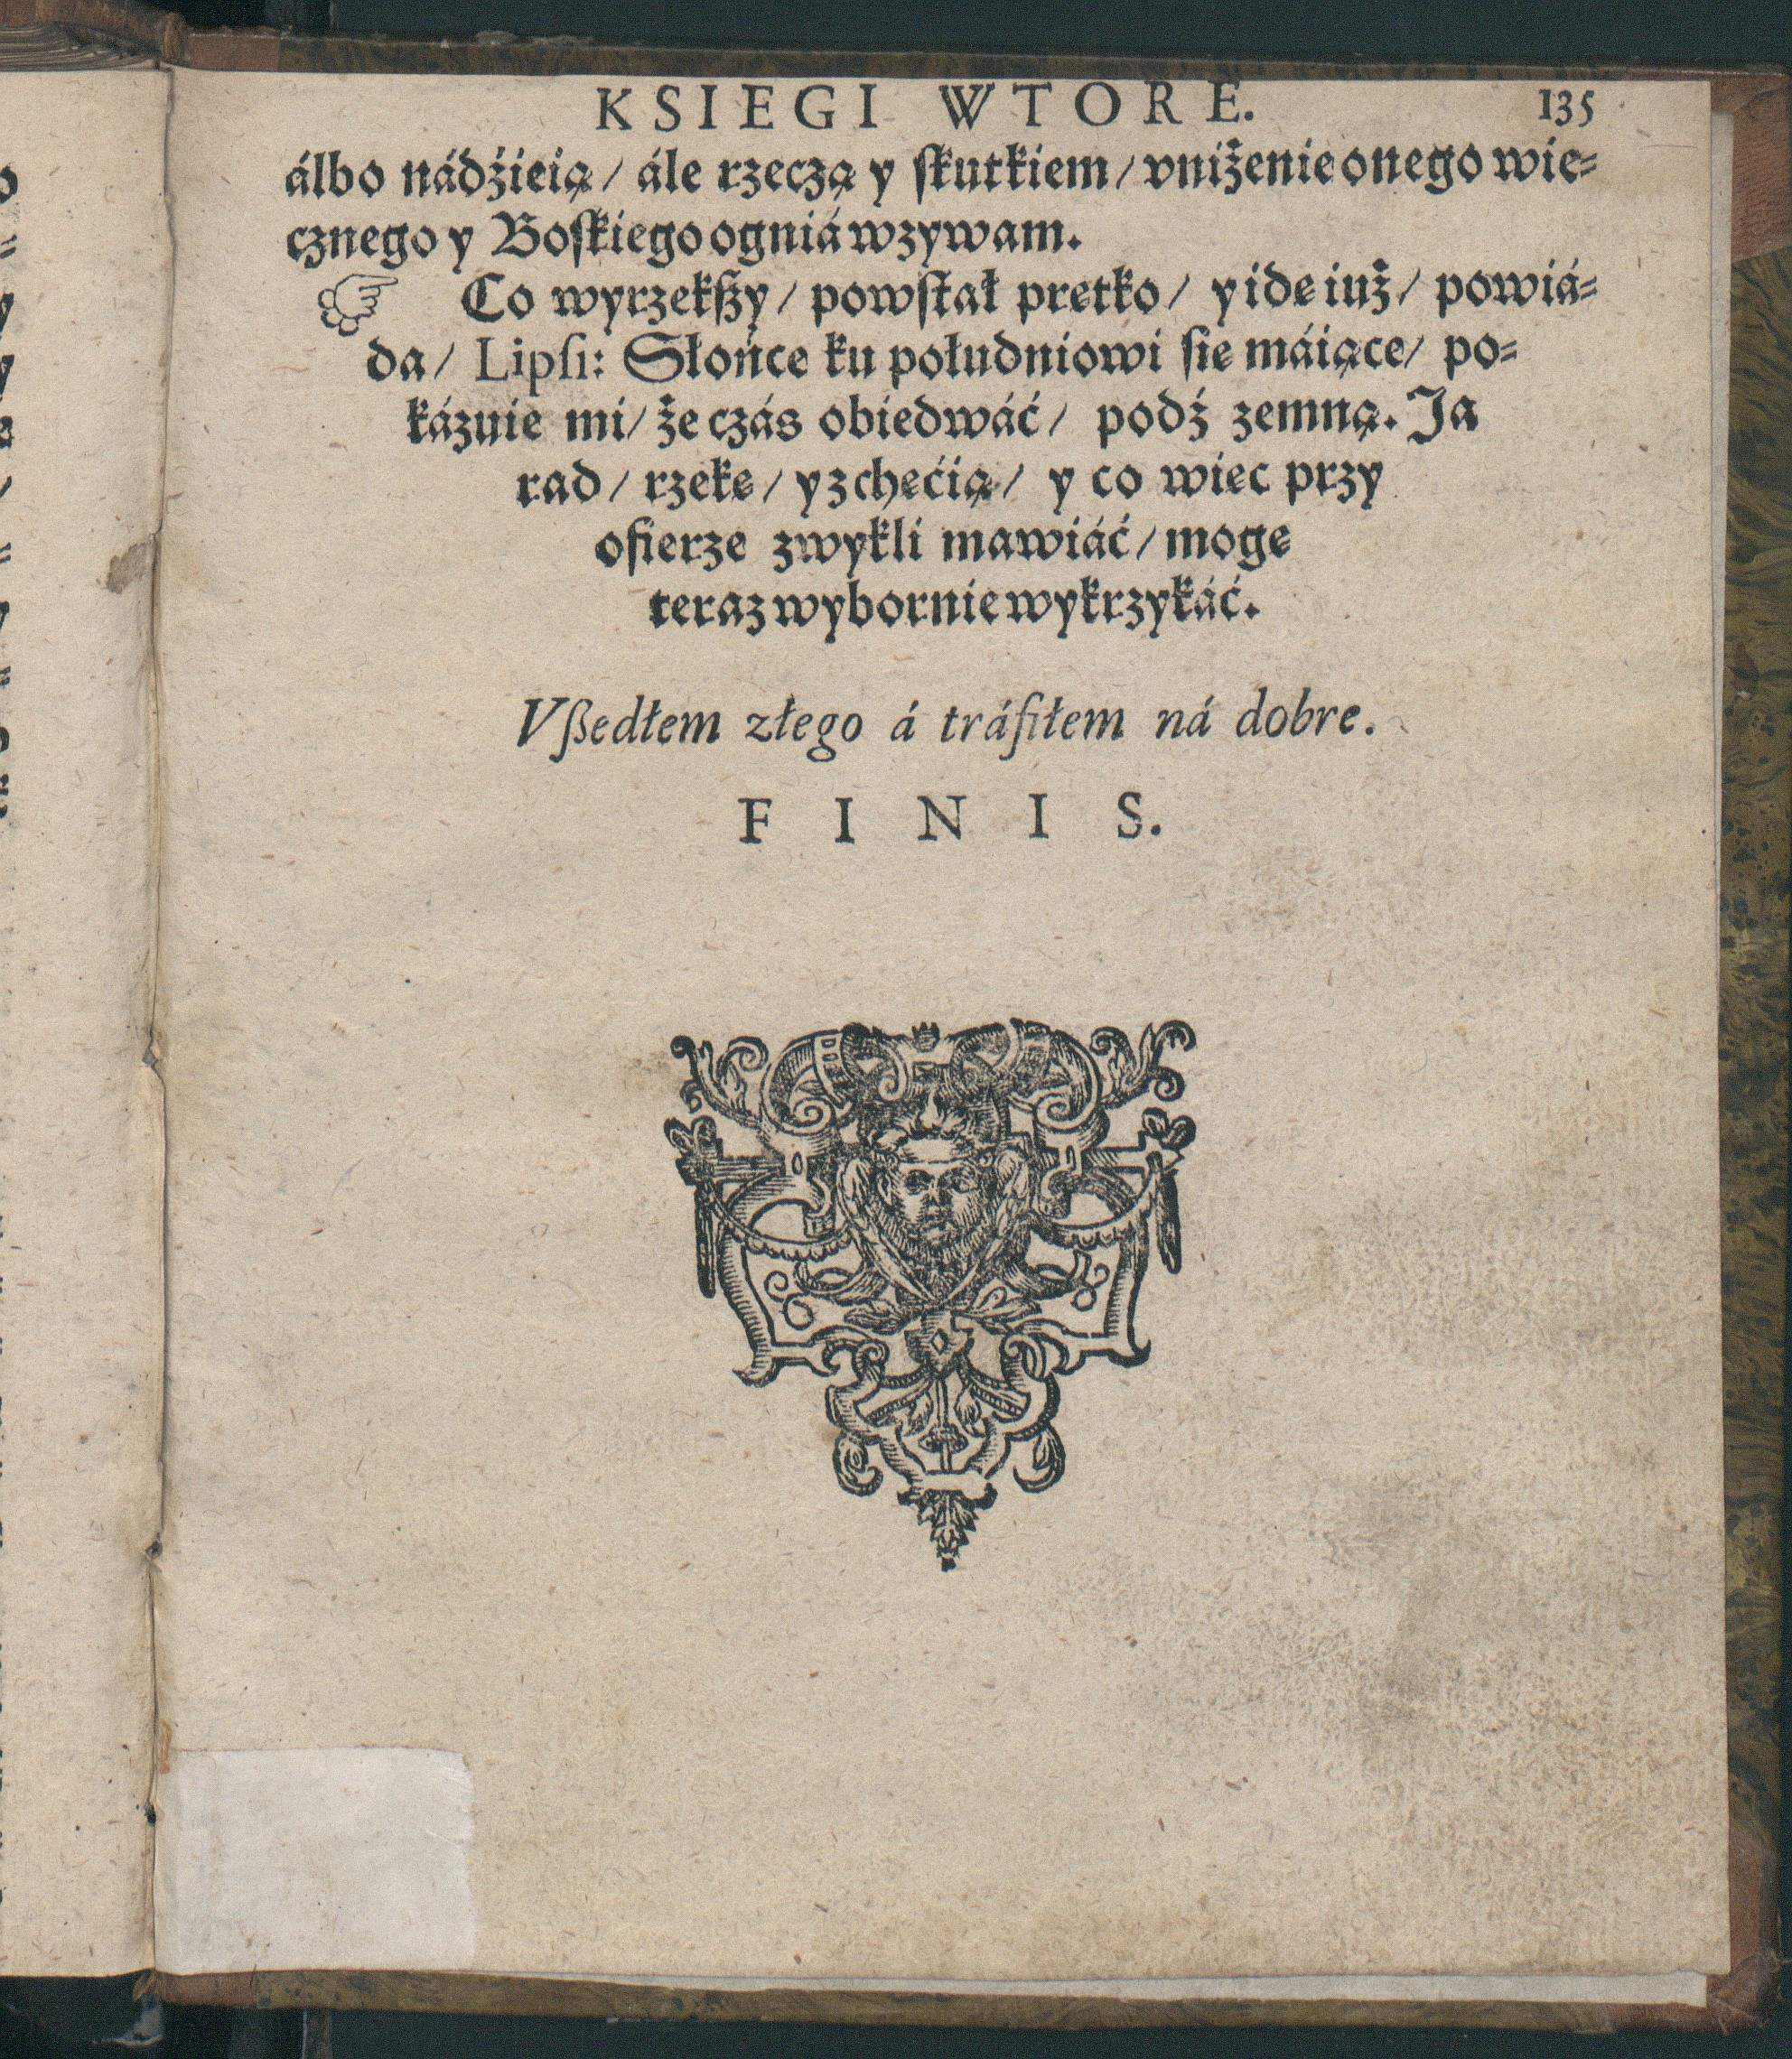 KSIEGI WTORE. 135
álbo nádźieią/ ále rzeczą y ſkutkiem/ vniżenie onego wie-
cznego y Boſkiego ogniá wzywam.
☞ Co wyrzekſzy/ powſtał prętko/ y idę iuż/ powiá-
da/ Lipſi: Słońce ku południowi ſie máiące/ po-
kázuie mi/ że czás obiedwáć/ podź zemną. Ja
rad/ rzekę/ y z chęćią/ y co więc przy
ofierze zwykli mawiáć/ mogę
teraz wybornie wykrzykáć.
Vſzedłem złego á tráfiłem ná dobre.
FINIS.